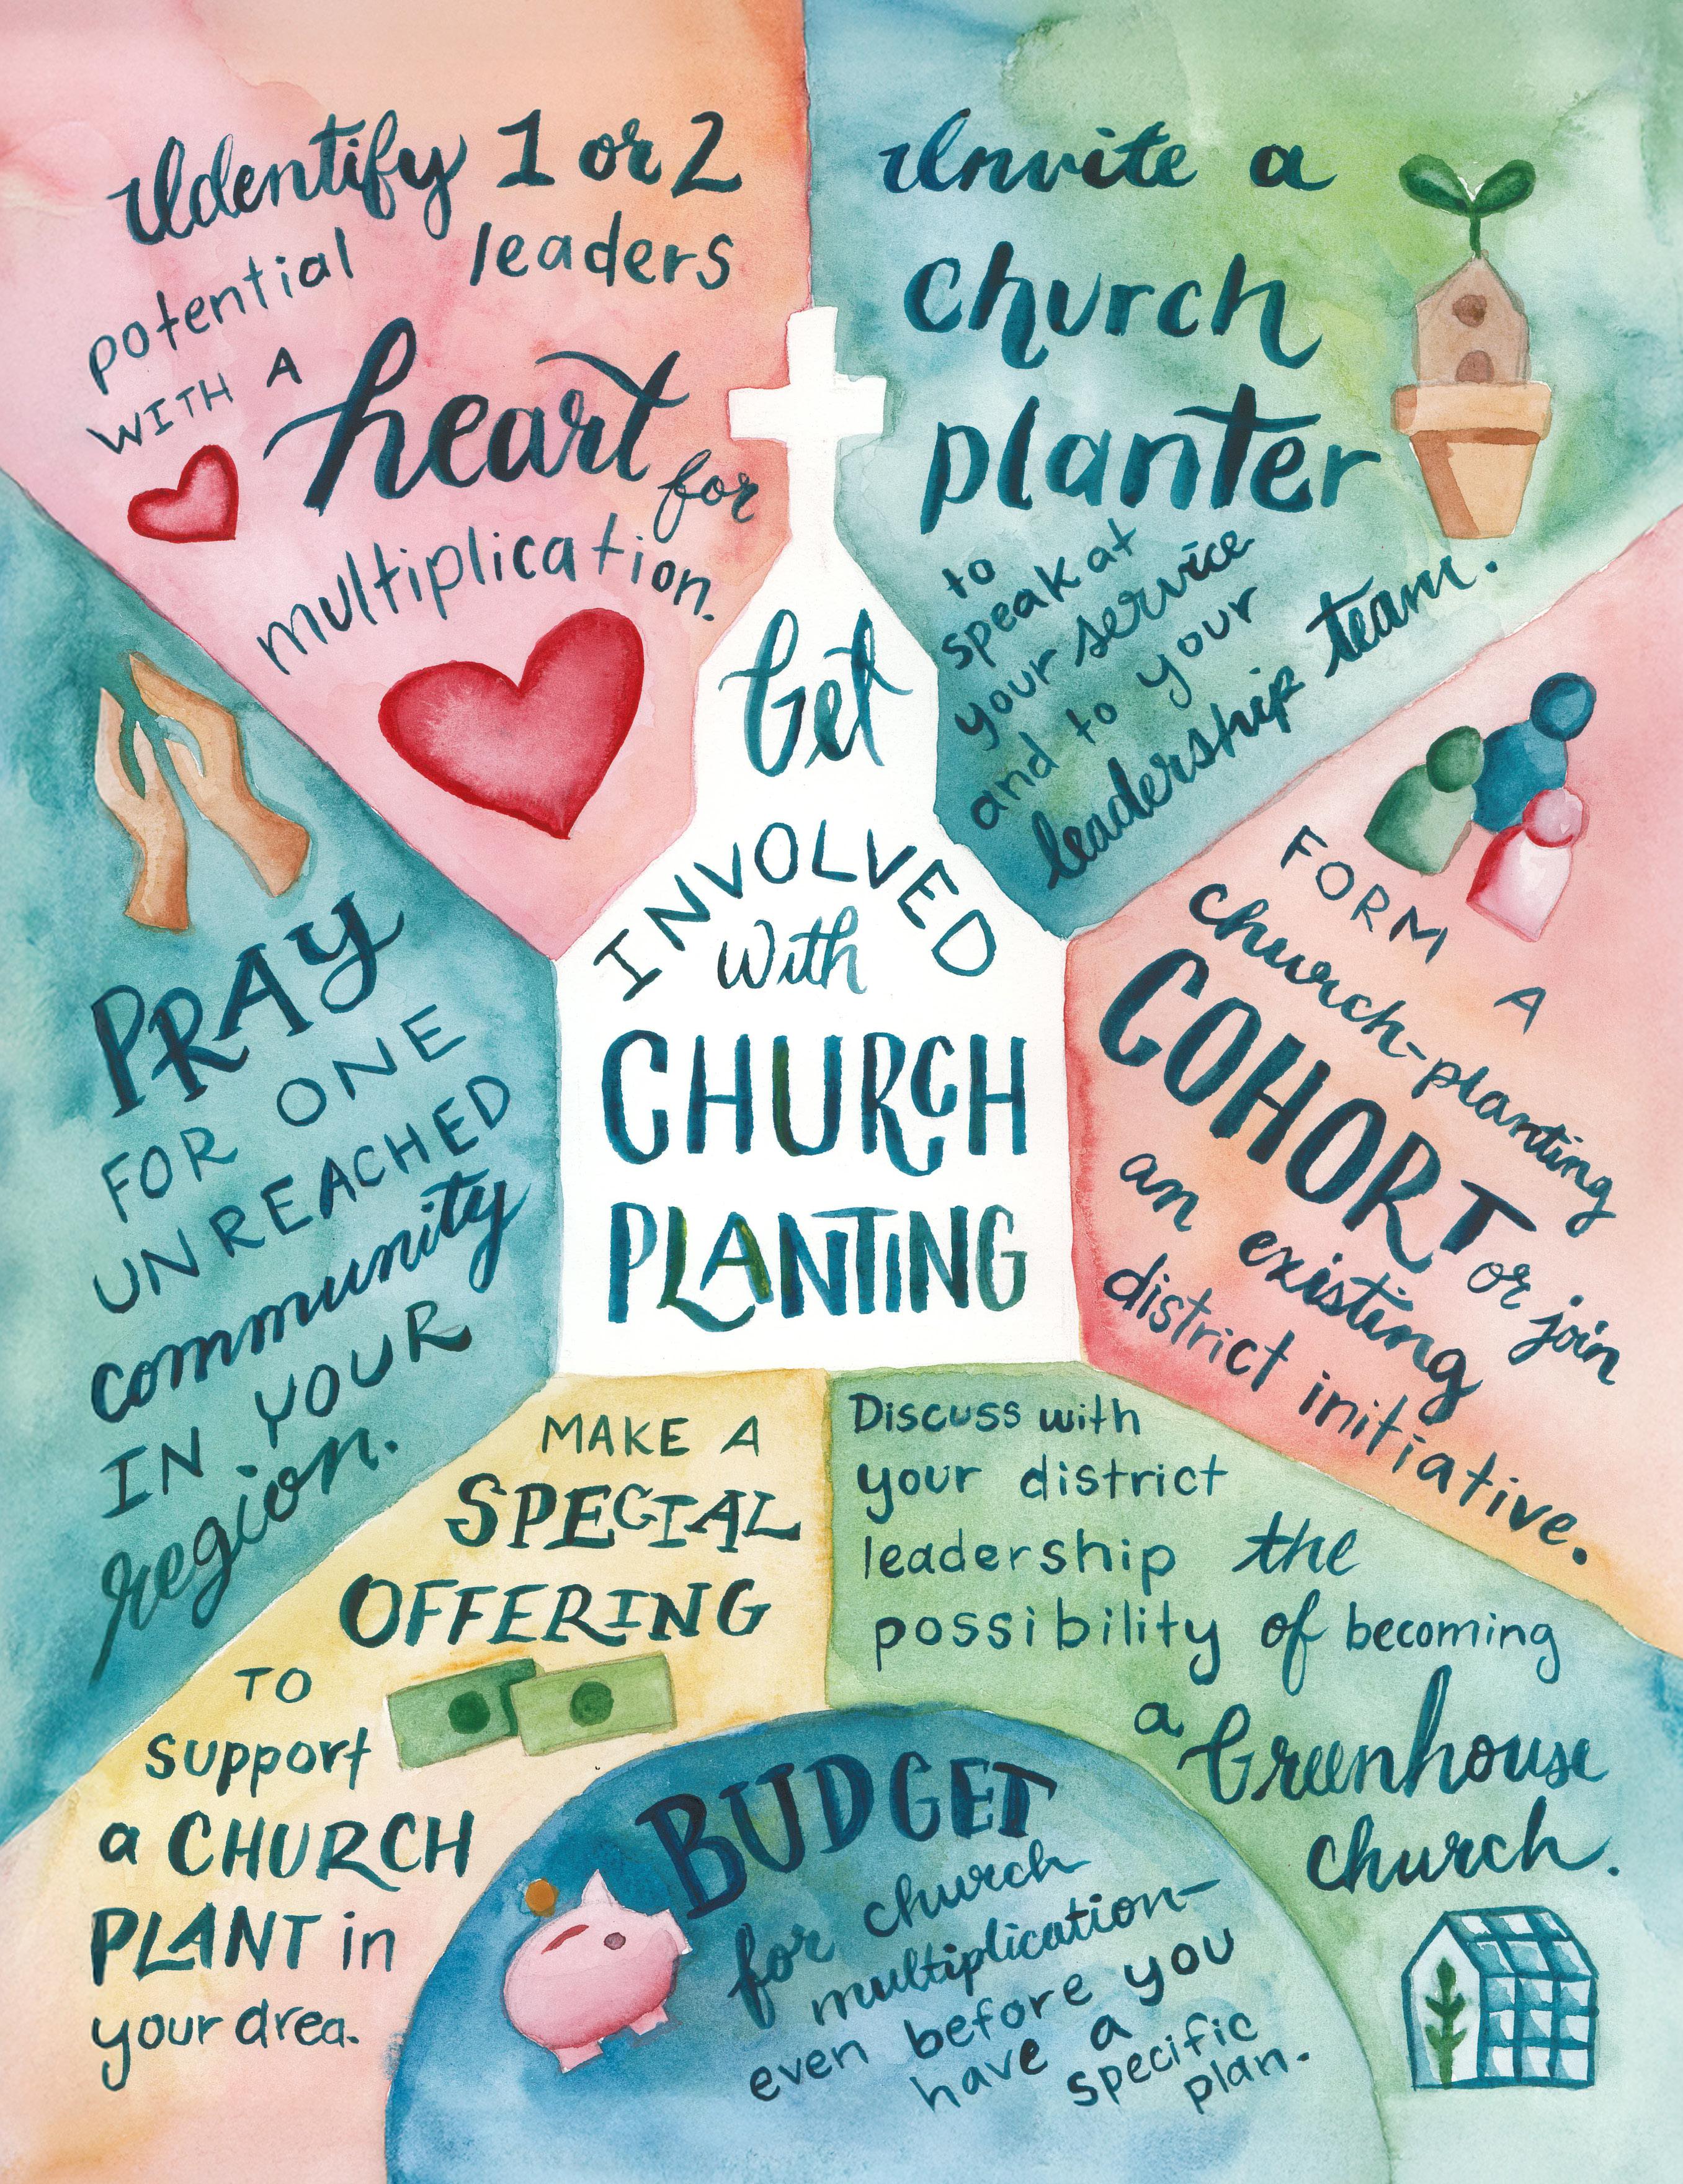 Get
INVOLVED
with
CHURCH
PLANTING
Identify 1 or 2
potential leaders
WITH A heart for
multiplication.
Invite a
church
planter
to
speak at
your service
and to your
leadership team.
FORM A
church-planting
COHORT or join
an existing
district initiative.
Discuss with
your district
leadership the
possibility of becoming
a Greenhouse
church.
BUDGET
for church
multiplication-
even before you
have a specific
plan.
MAKE A
SPECIAL
OFFERING
TO
support
a CHURCH
PLANT in
your area.
PRAY
FOR ONE
UNREACHED
community
IN YOUR
region.